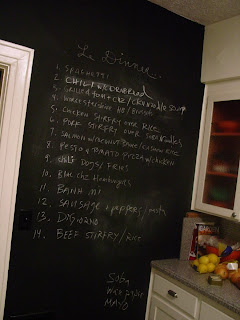 Le Dinner
1. SPAGHETTI
2. CHILI W/CORNBREAD
3. GRILLED chz / chx noodle soup
4. Worcestershire HB / Broccoli
5. Chicken STIRFRY over RICE
6. PORK STIRFRY over SOBA Noodles
7. SALMON w/coconut
8. PESTO & TOMATO PIZZA w/chicken
9. CHILI DOGS / FRIES
10. BLU CHZ Hamburgers
11. BANH MI
12. SAUSAGE & peppers / pasta
13.
14. BEEF STIRFRY / RICE
Soba
MAYO